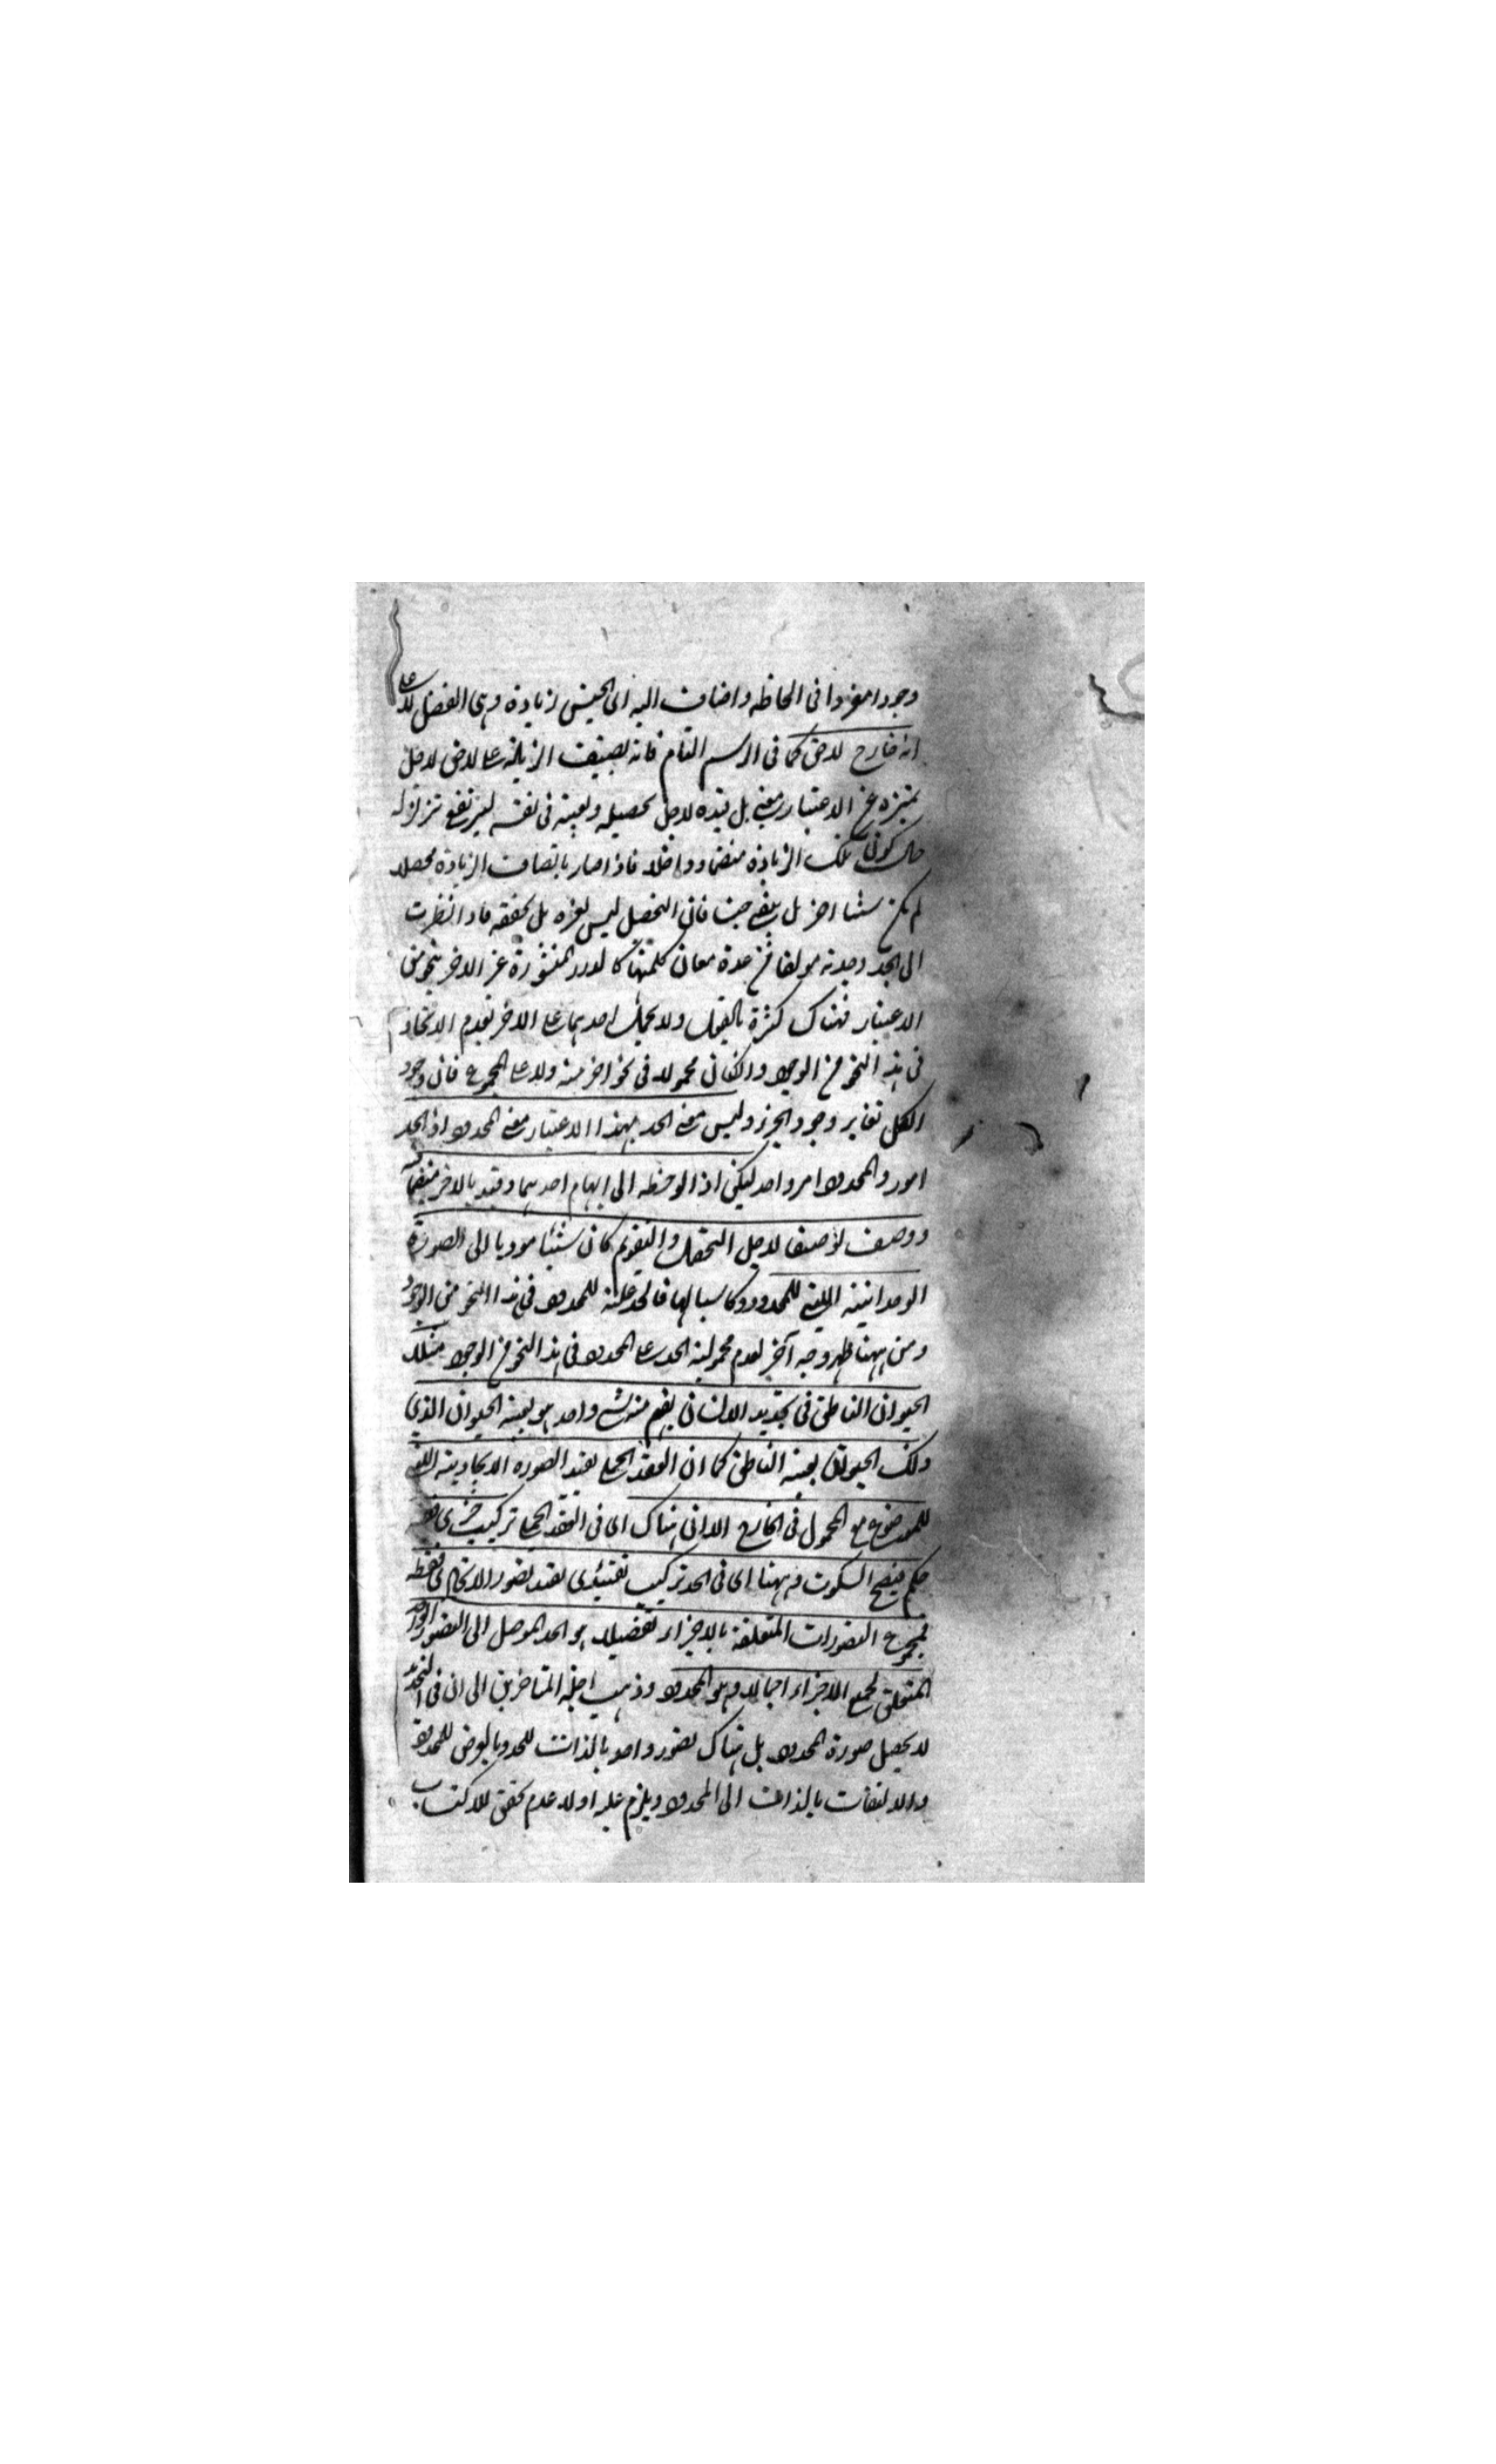 وجودا مفردا في لحاظه واضاف اليه اى الجنس زيادة وهى الفصل لا على
انه خارج لاحق كما في الرسم التام فانه يضيف الزيادة على لاحق لاجل
تميزه عن الاعتبار معنى بل قيده لاجل تحصيله وتعينه في نفسه ليرتفع تزلزله
حال كون تلك الزيادة منضما وداخلا فاذا صار بانضياف الزيادة محصلا
لم يكن شيئا اخر بل يبقى جنسا فان التحصل ليس يغيره بل يحققه فاذا نظرت
الى الحد وجدته مولفا من عدة معان كل منها كالدرر المنثورة غير الاخر بنحو من
الاعتبار فهناك كثرة بالفعل ولا يحمل احدهما على الاخر لعدم الاتحاد
في هذا النحو من الوجود وان كان محمولا في نحو اخر منه ولا على المجموع فان وجود
الكل تغاير وجود الجزء وليس معنى الحد بهذا الاعتبار معنى المحدود اذ الحد
امور والمحدود امر واحد لكن اذا لوحظ الى ابهام احدهما وقيد بالاخر منضما
ووصف توصيفا لاجل التحصل والتقوم كان شيئا موديا الى الصورة
الوحدانية التي للمحدود وكاسبا لها فالحد علة للمحدود في هذا النحو من الوجود
ومن ههنا ظهر وجه آخر لعدم محمولية الحد على المحدود في هذا النحو من الوجود مثلا
الحيوان الناطق في تحديد الانسان يفهم منه شئ واحد هو بعينه الحيوان الذي
ذلك الحيوان بعينه الناطق كما ان العقد الحملي يفيد الصورة الاتحادية التي
للموضوع مع المحمول في الخارج الا ان هناك اى في العقد الحملي تركيب خبرى فيه
حكم فيصح السكوت وههنا اى في الحد تركيب تقييدى يفيد تصور الاتحاد فقط
فمجموع التصورات المتعلقة بالاجزاء تفصيلا هو الحد الموصل الى التصور الواحد
المتعلق بجميع الاجزاء اجمالا وهو المحدود وذهب اجلة المتاخرين الى ان في التحديد
لا يحصل صورة المحدود بل هناك تصور واحد بالذات للحد وبالعرض للمحدود
والالتفات بالذات الى المحدود ويلزم عليه اولا عدم تحقق الاكتساب